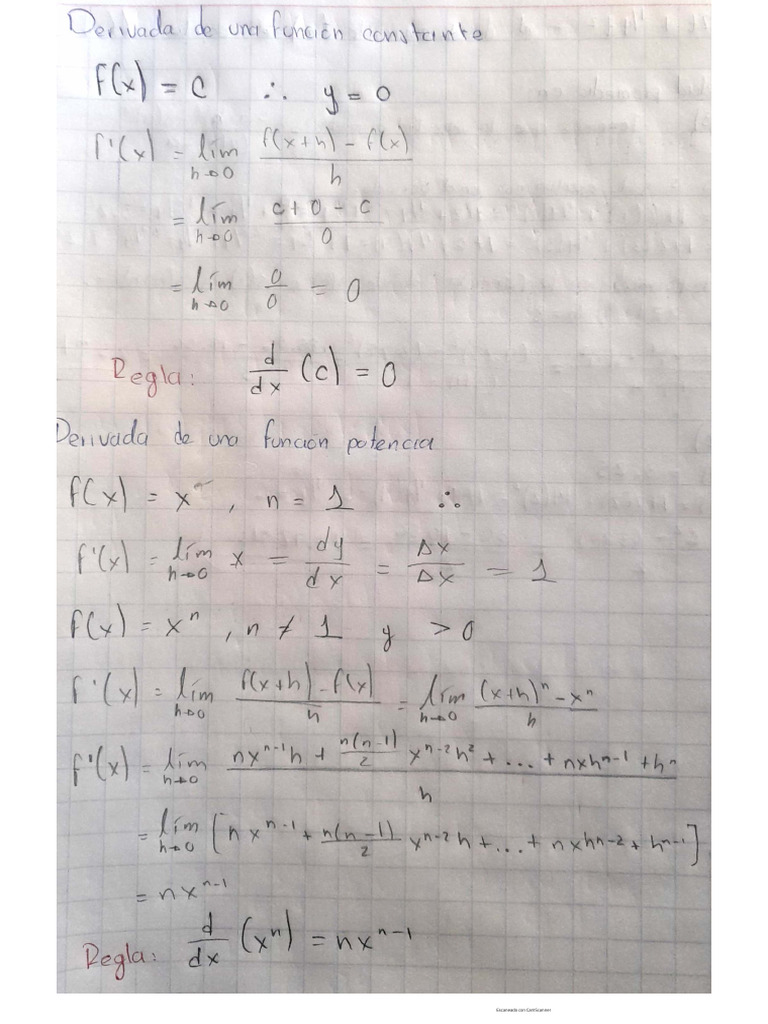 Derivada de una función constante
f(x) = c ∴ y = 0
f'(x) = lím h→0 f(x+h) - f(x) / h
= lím h→0 c + 0 - c / 0
= lím h→0 0/0 = 0
Regla: d/dx (c) = 0
Derivada de una función potencia
f(x) = x , n = 1 ∴
f'(x) = lím h→0 x = dy/dx = Δx/Δx = 1
f(x) = xⁿ , n ≠ 1 y > 0
f'(x) = lím h→0 f(x+h) - f(x) / h = lím h→0 (x+h)ⁿ - xⁿ / h
f'(x) = lím h→0 nxⁿ⁻¹h + n(n-1)/2 xⁿ⁻²h² + ... + nxhⁿ⁻¹ + hⁿ / h
= lím h→0 [nxⁿ⁻¹ + n(n-1)/2 xⁿ⁻²h + ... + nxhⁿ⁻² + hⁿ⁻¹]
= nxⁿ⁻¹
Regla: d/dx (xⁿ) = nxⁿ⁻¹
Escaneado con CamScanner